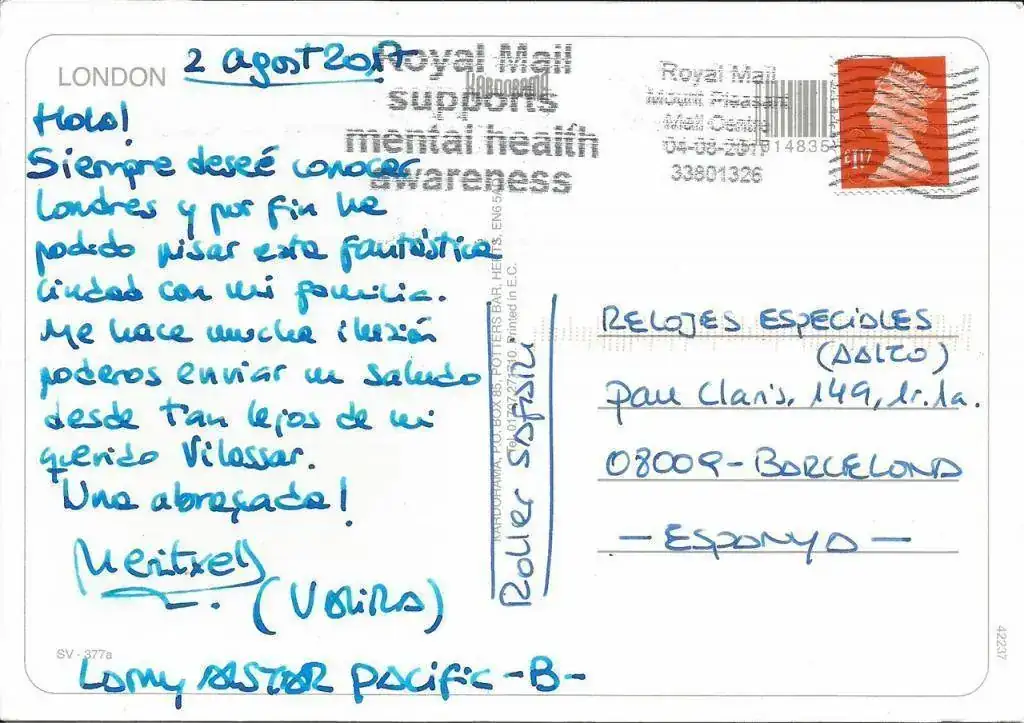 LONDON
2 agost 2017
Hola!
Siempre deseé conocer
Londres y por fin he
podido pisar esta fantástica
ciudad con mi familia.
Me hace mucha ilusión
poderos enviar un saludo
desde tan lejos de mi
querido Vilassar.
Una abraçada!
Meritxell
(VALIRA)
Lamy ALSTAR pacific -B-
SV - 377a
Royal Mail
supports
mental health
awareness
KARDORAMA
Royal Mail
Mount Pleasant
Mail Centre
04-08-2017
33801326
£1.17
KARDORAMA, P.O. BOX 85, POTTERS BAR, HERTS, EN6 5AD
Printed in E.C.
Roller SAFARI
RELOJES ESPECIALES
(AALTO)
Pau Claris, 149, 1r. 1a.
08009 - BARCELONA
- ESPANYA -
42237